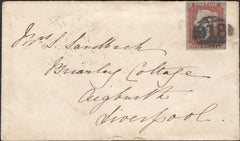 Mrs S. Sandbach
Brierley Cottage
Aigburth
Liverpool.